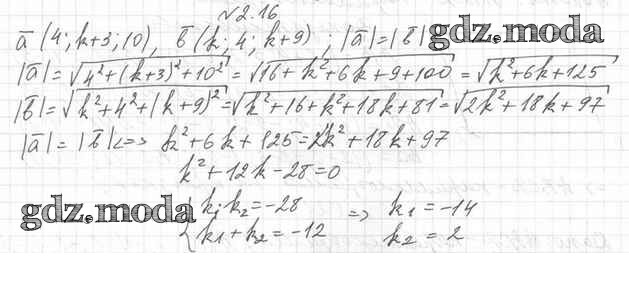 №2.16
a̅ (4; k+3; 10), b̅ (k; 4; k+9) ; |a̅|=|b̅| gdz.moda
|a̅|=√(4²+(k+3)²+10²) = √(16+k²+6k+9+100) = √(k²+6k+125)
|b̅|=√(k²+4²+(k+9)²)=√(k²+16+k²+18k+81)=√(2k²+18k+97)
|a̅|=|b̅|<=> k²+6k+125=2k²+18k+97
k²+12k-28=0
gdz.moda
{ k₁·k₂=-28 => k₁=-14
k₁+k₂=-12 k₂=2